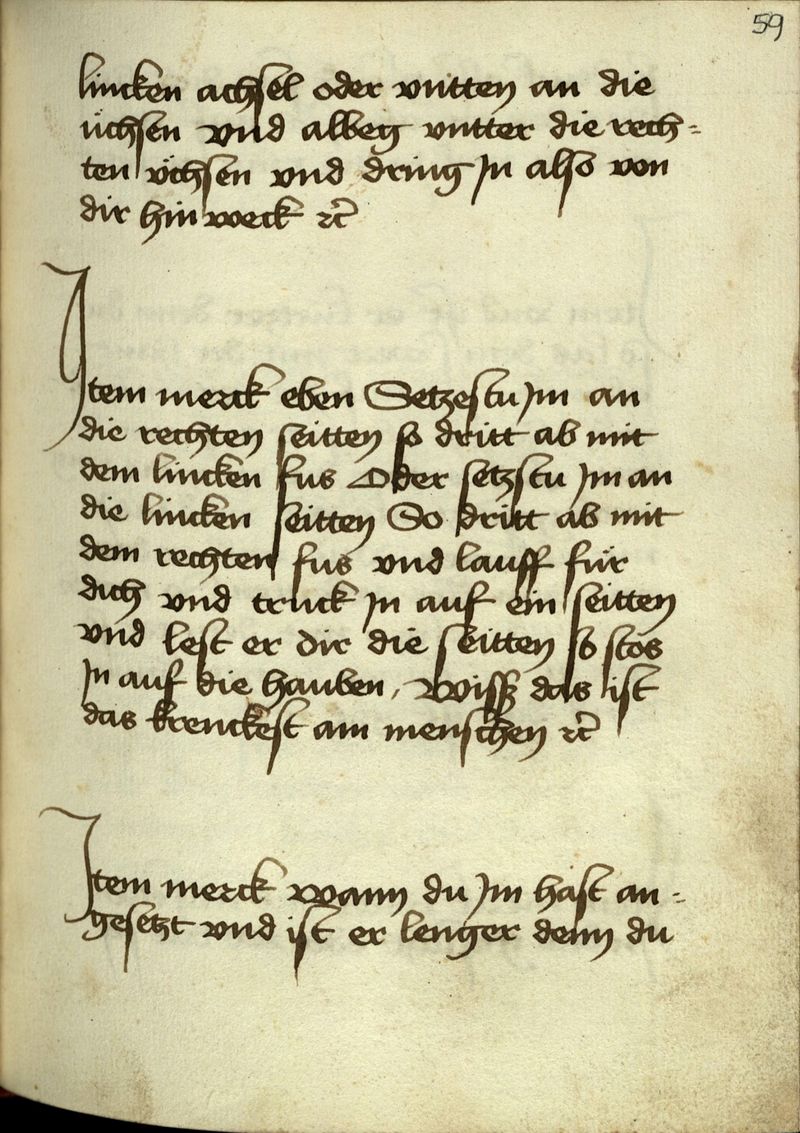 59
lincken achsel oder vntten an die
üchsen vnd albeg vntter die rech-
ten üchsen vnd dring Jn also von
dir hin weck rc
Jtem merck eben Setzestu Jm an
die rechten seitten so dritt ab mit
dem lincken fus Oder setzstu Jm an
die lincken seitten So dritt ab mit
dem rechten fus vnd lauff für
dich vnd truck Jn auf ein seitten
vnd lest er dir die seitten so stos
Jn auf die hauben, Wiss das ist
das krenckest am menschen rc
Jtem merck wann du Jm hast an-
gesetzt vnd ist er lenger denn du